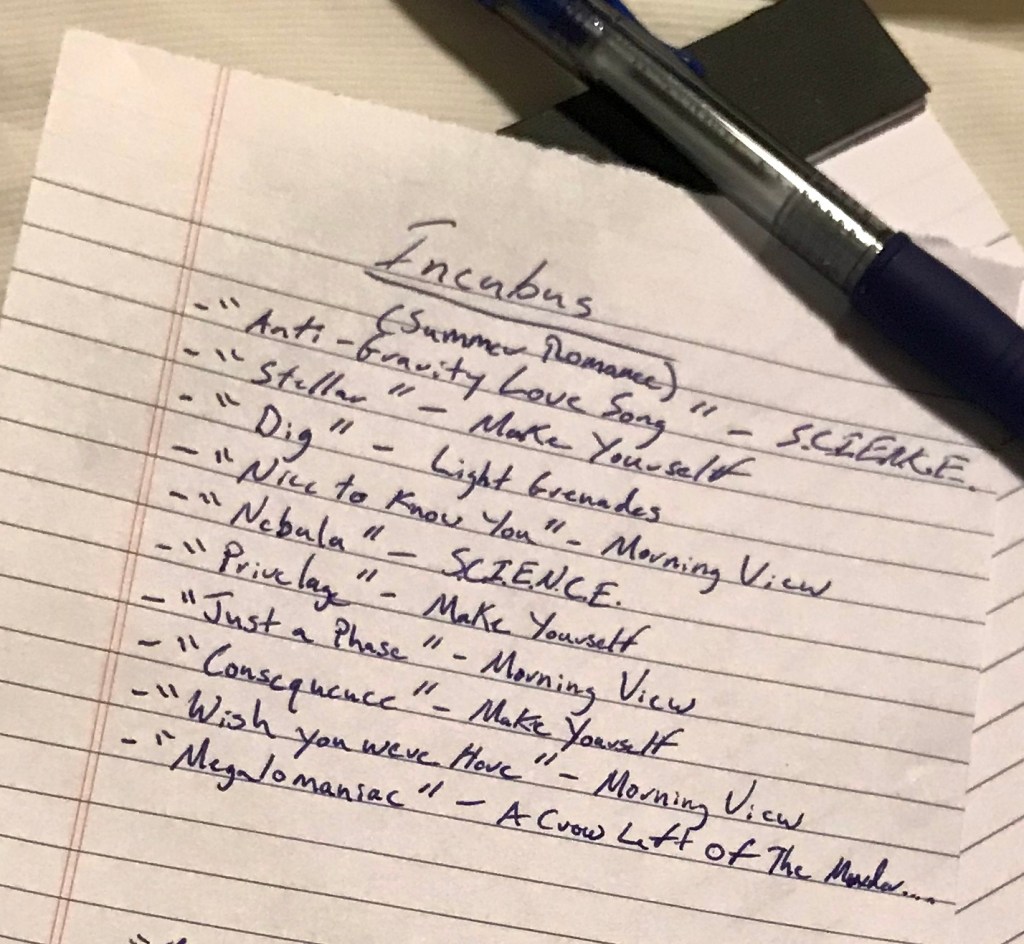 Incubus
(Summer Romance)
- "Anti-Gravity Love Song" - S.C.I.E.N.C.E.
- "Stellar" - Make Yourself
- "Dig" - Light Grenades
- "Nice to Know You" - Morning View
- "Nebula" - S.C.I.E.N.C.E.
- "Privelage" - Make Yourself
- "Just a Phase" - Morning View
- "Consequence" - Make Yourself
- "Wish you were Here" - Morning View
- "Megalomaniac" - A Crow Left of The